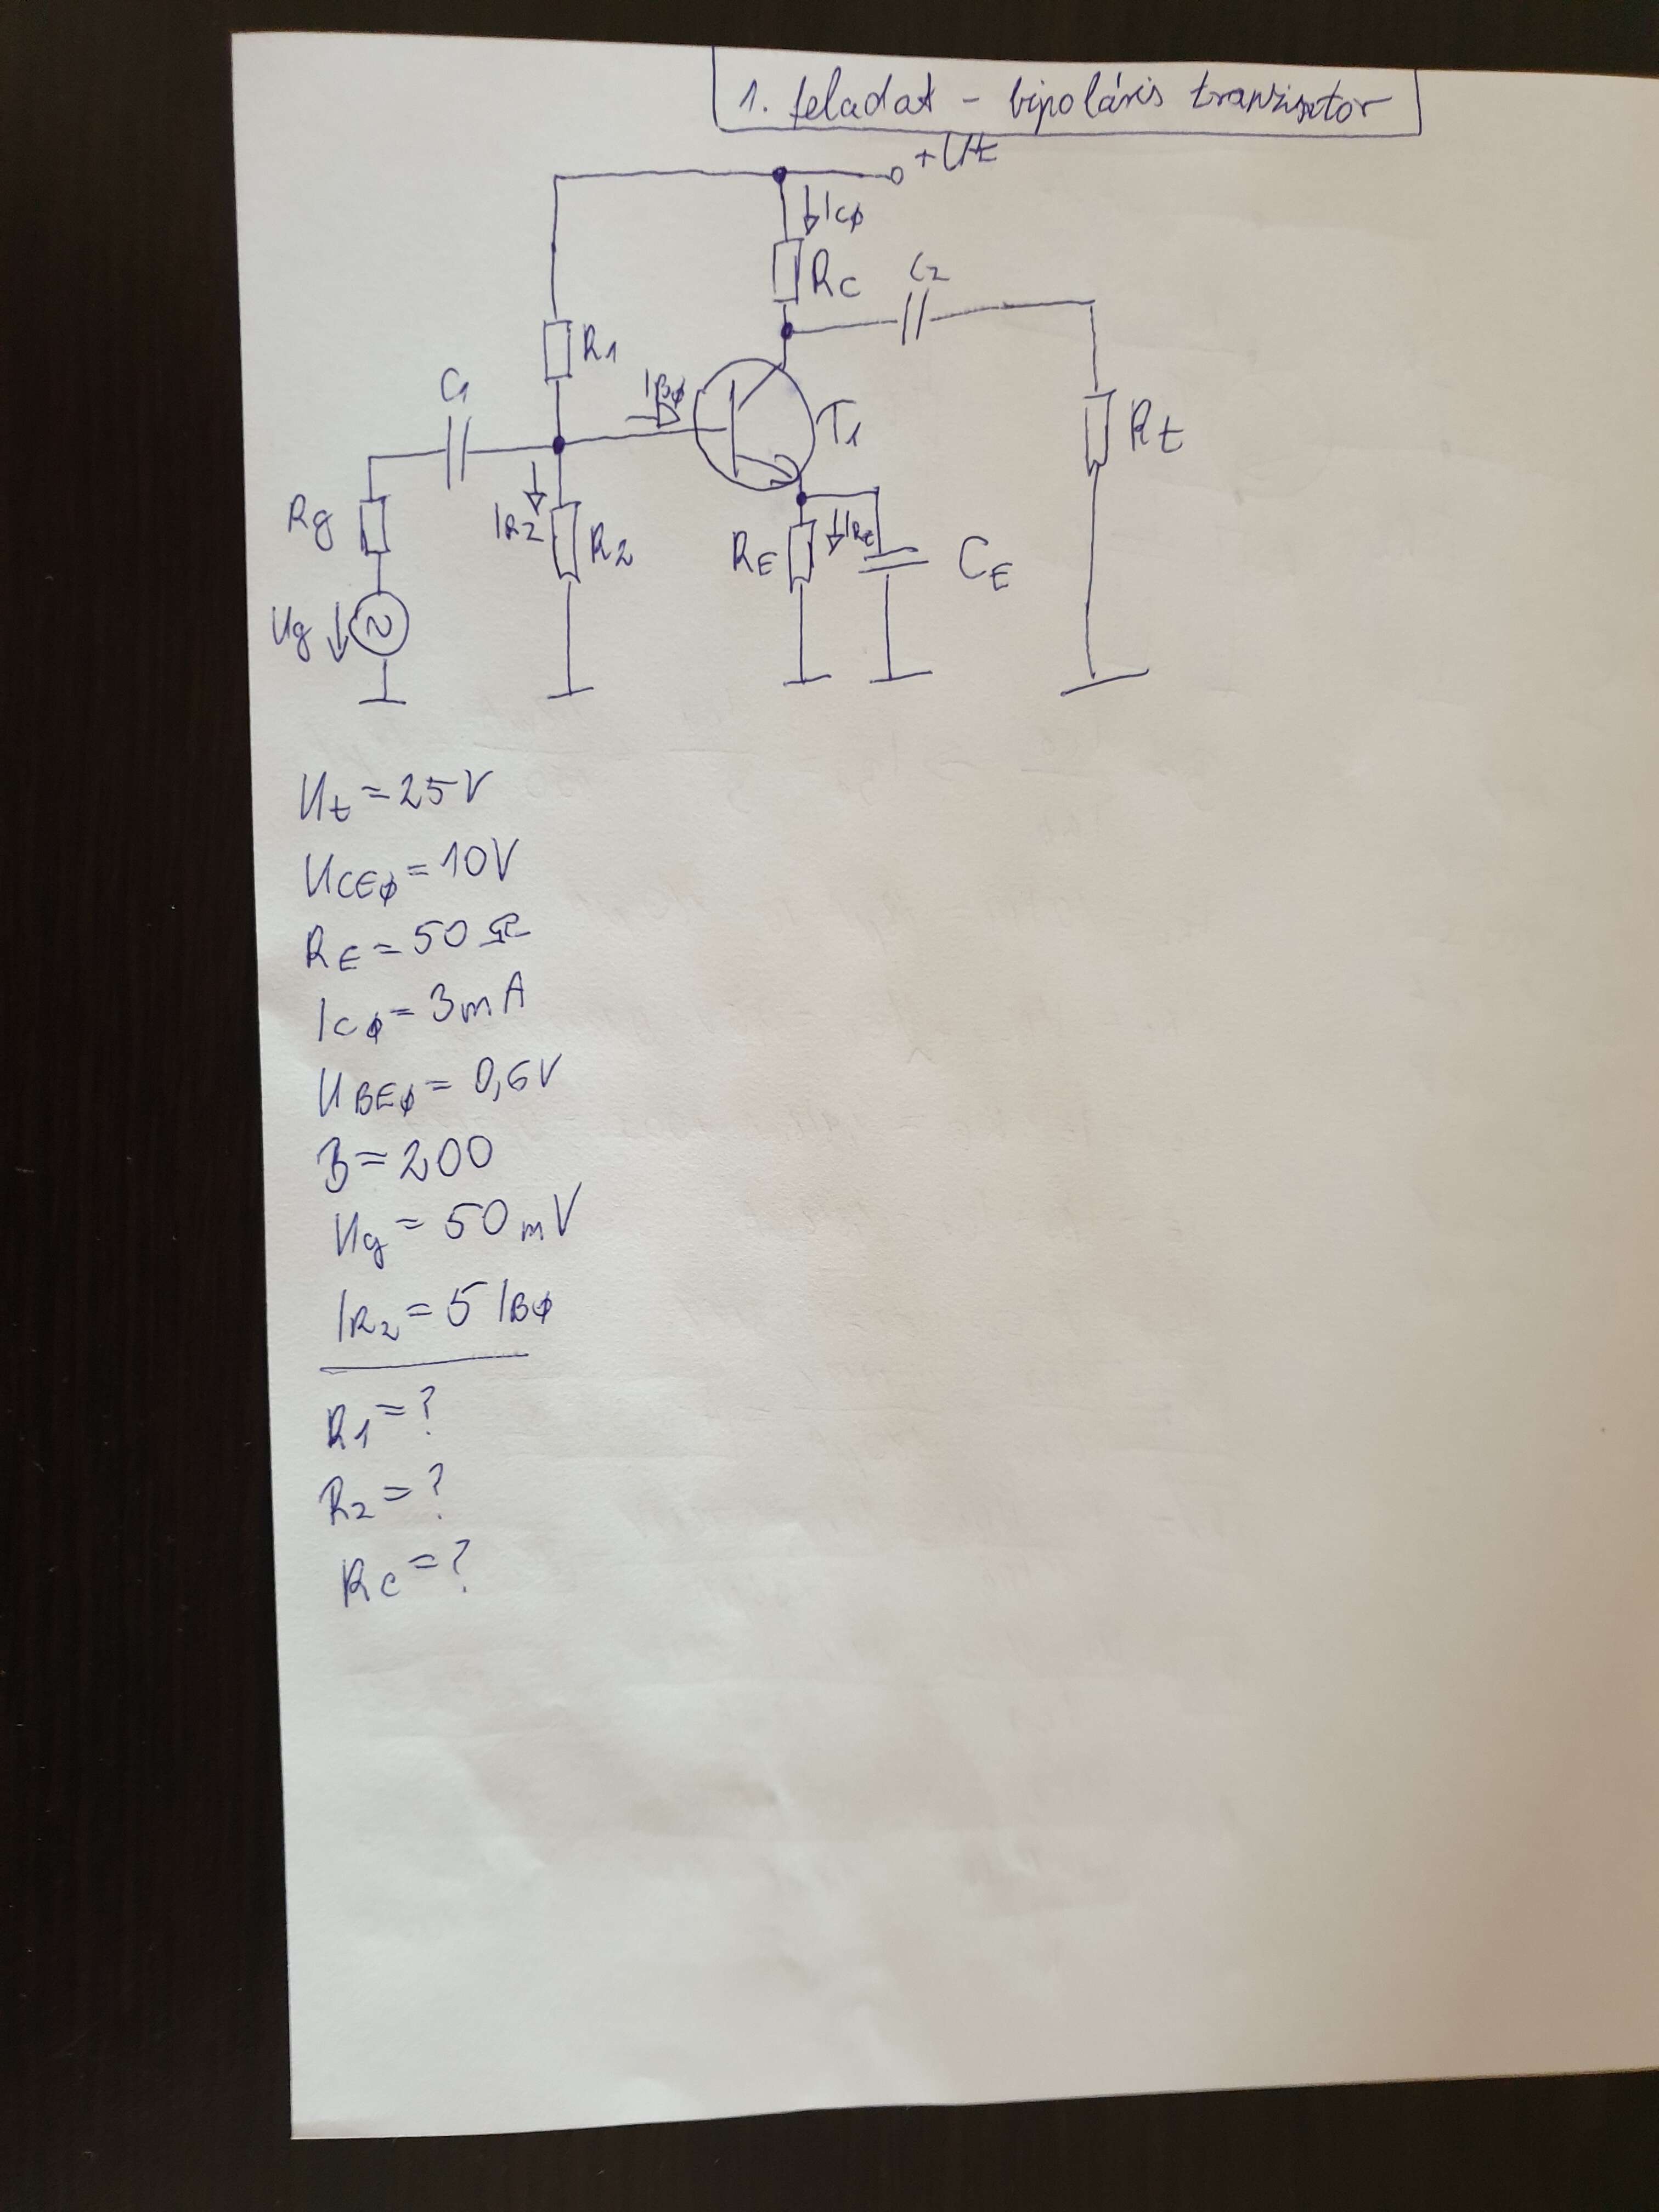 1. feladat - bipoláris tranzisztor
+Ut
ICϕ
RC
C2
R1
C1
IBϕ
T1
Rt
Rg
IR2
R2
RE
IRE
CE
Ug
Ut = 25V
UCEϕ = 10V
RE = 50 Ω
ICϕ = 3mA
UBEϕ = 0,6V
B = 200
Ug = 50mV
IR2 = 5 IBϕ
R1 = ?
R2 = ?
RC = ?